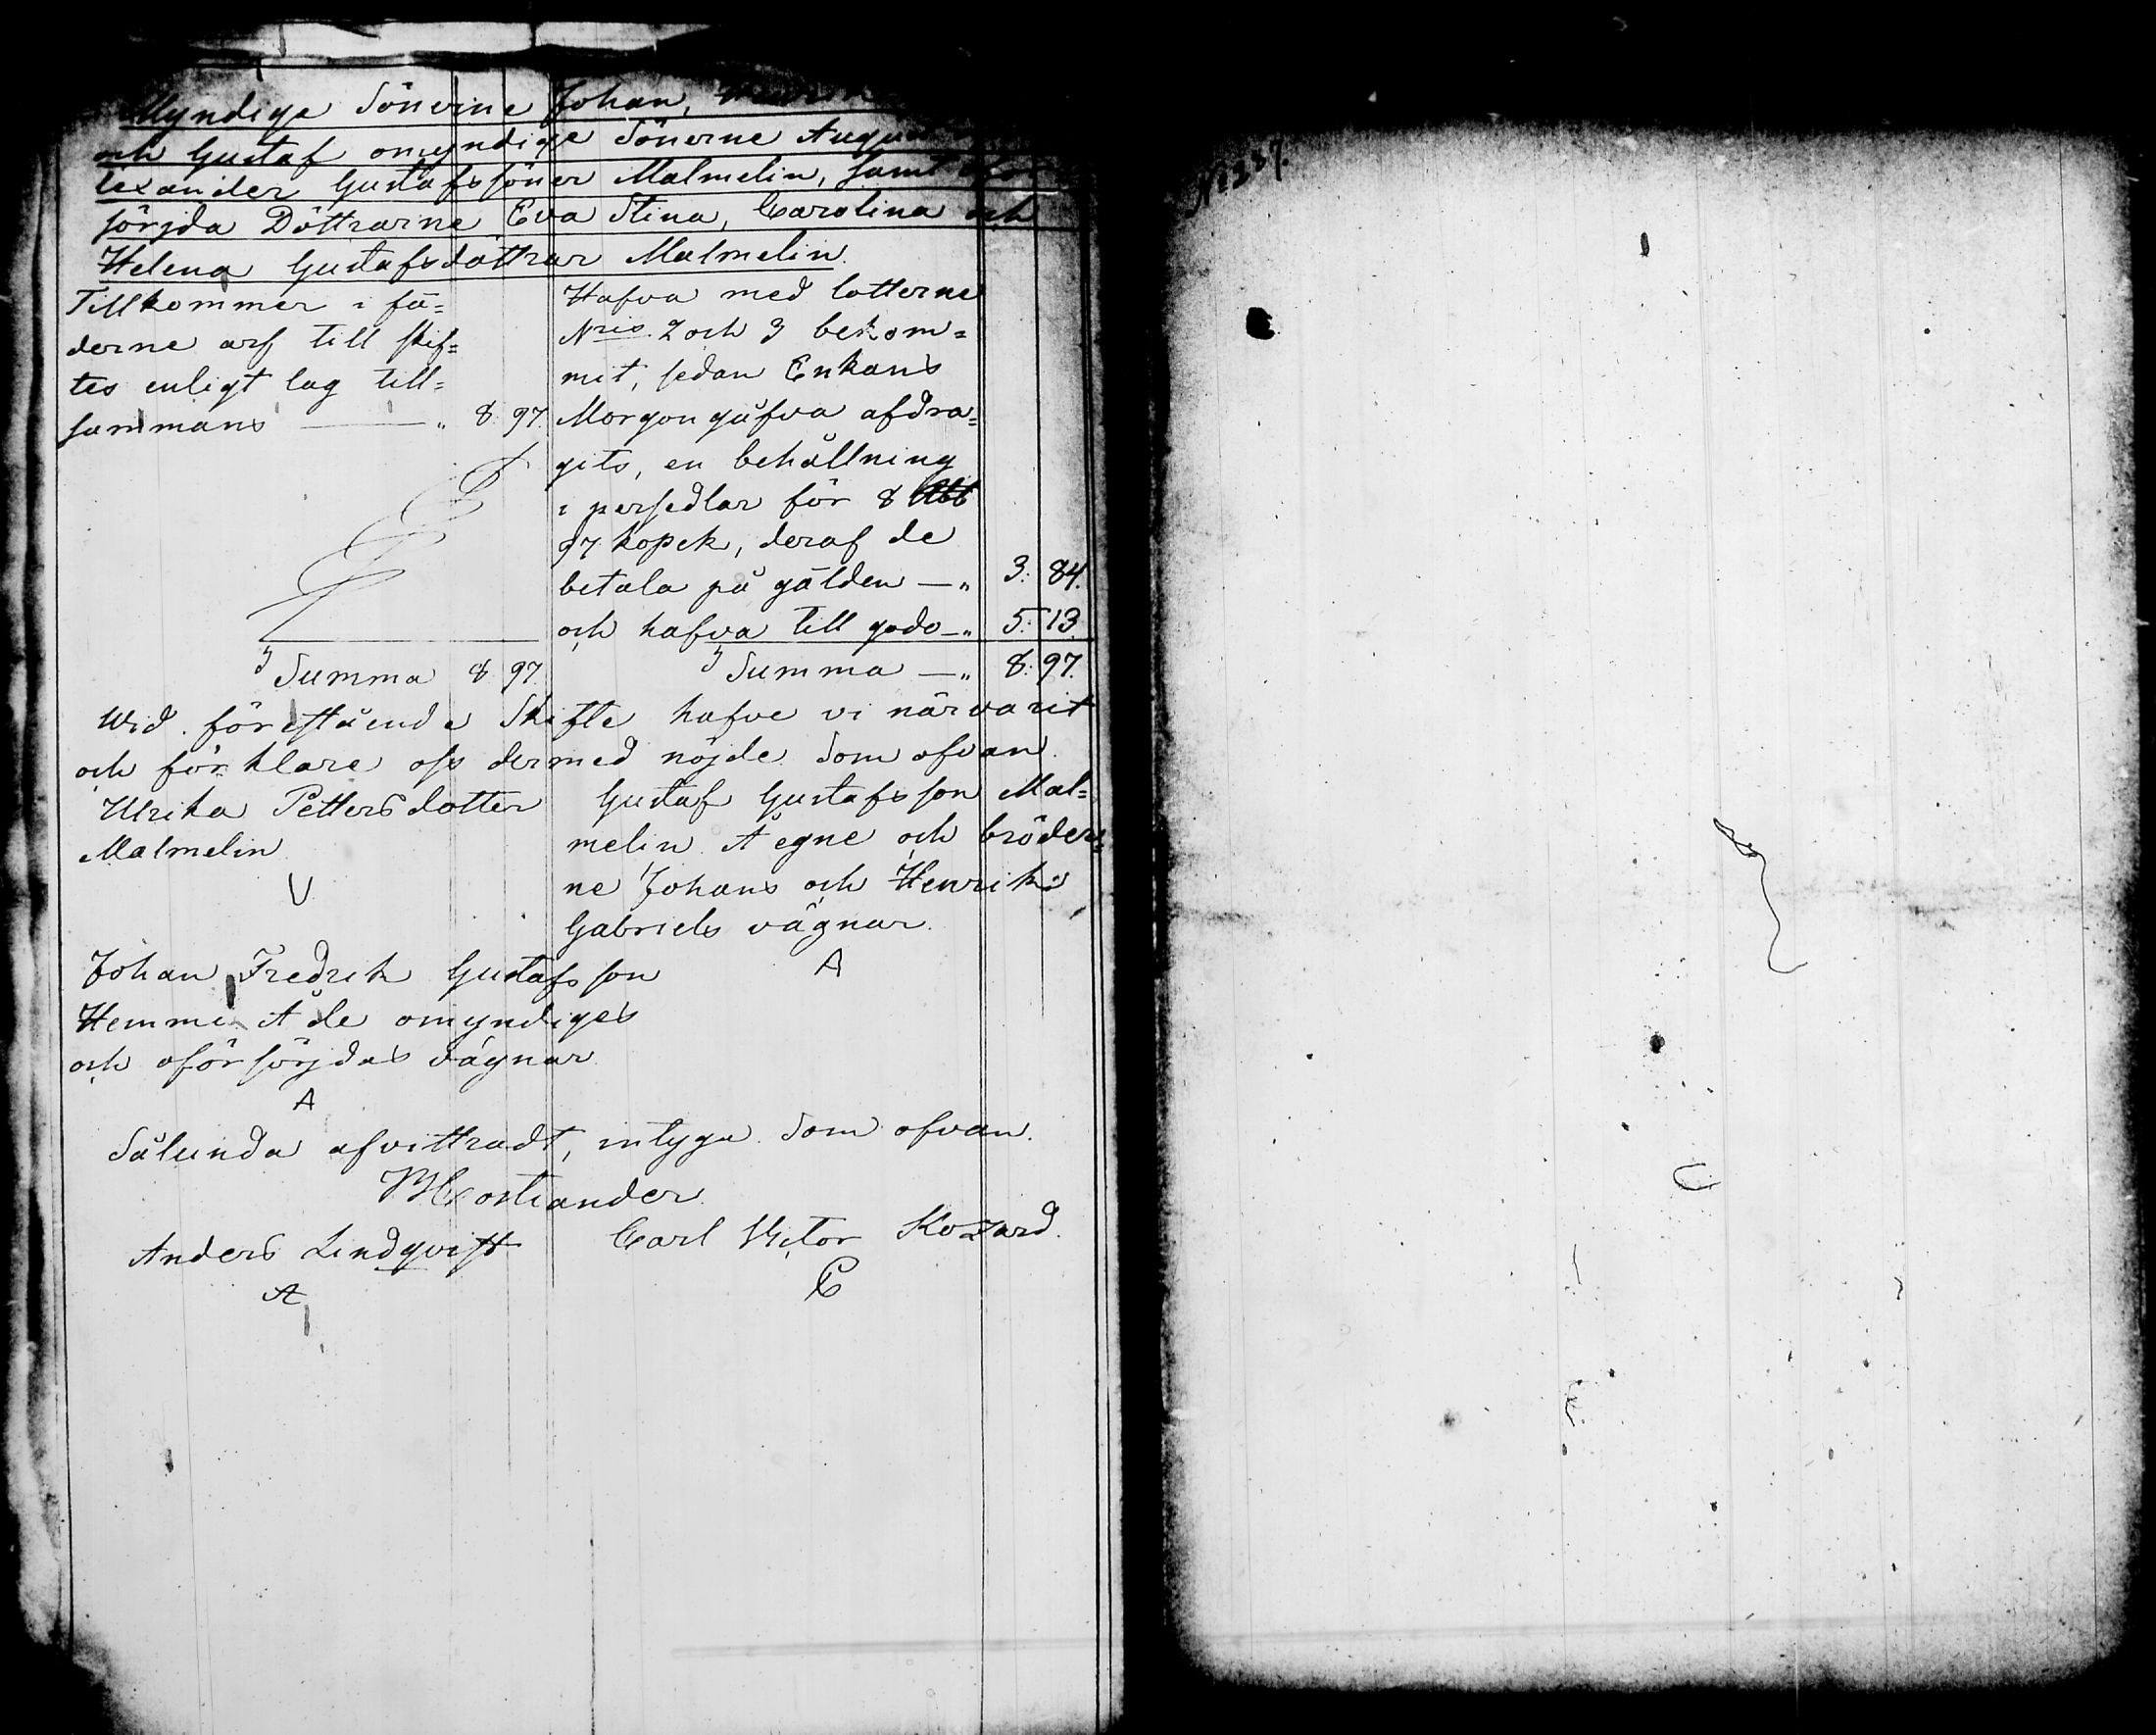 Myndige Sönerne Johan,
och Gustaf omyndige Sönerne August
lexander Gustafssöner Malmelin, samt oför
sörjda Döttrarne Eva Stina, Carolina och
Helena Gustafsdöttrar Malmelin.
Tillkommer i fä=
derne arf till skif=
tes enligt lag till=
sammans — „ 8 97.
Summa 8 97.
Hafva med lotterne
Nris 2 och 3 bekom=
mit, sedan Enkans
Morgongåfva afdra=
gits, en behållning
i persedlar för 8 Rbl
97 kopek, deraf de
betala på gälden — „ 3: 84.
och hafva till godo — „ 5: 13.
Summa — „ 8: 97.
Wid förestående Skifte hafve vi närvarit
och förklare oss dermed nöjde Som ofvan.
Ulrika Pettersdotter
Malmelin
U
Gustaf Gustafsson Mal=
melin Å egne och bröder=
ne Johans och Henrik
Gabriels vägnar.
A
Johan Fredrik Gustafsson
Hemmi Å de omyndiges
och oförsörjdas vägnar
A
Sålunda afvittradt, intyga Som ofvan.
Costiander
Anders Lindqvist
A
Carl Victor Kozard.
C
No 237.